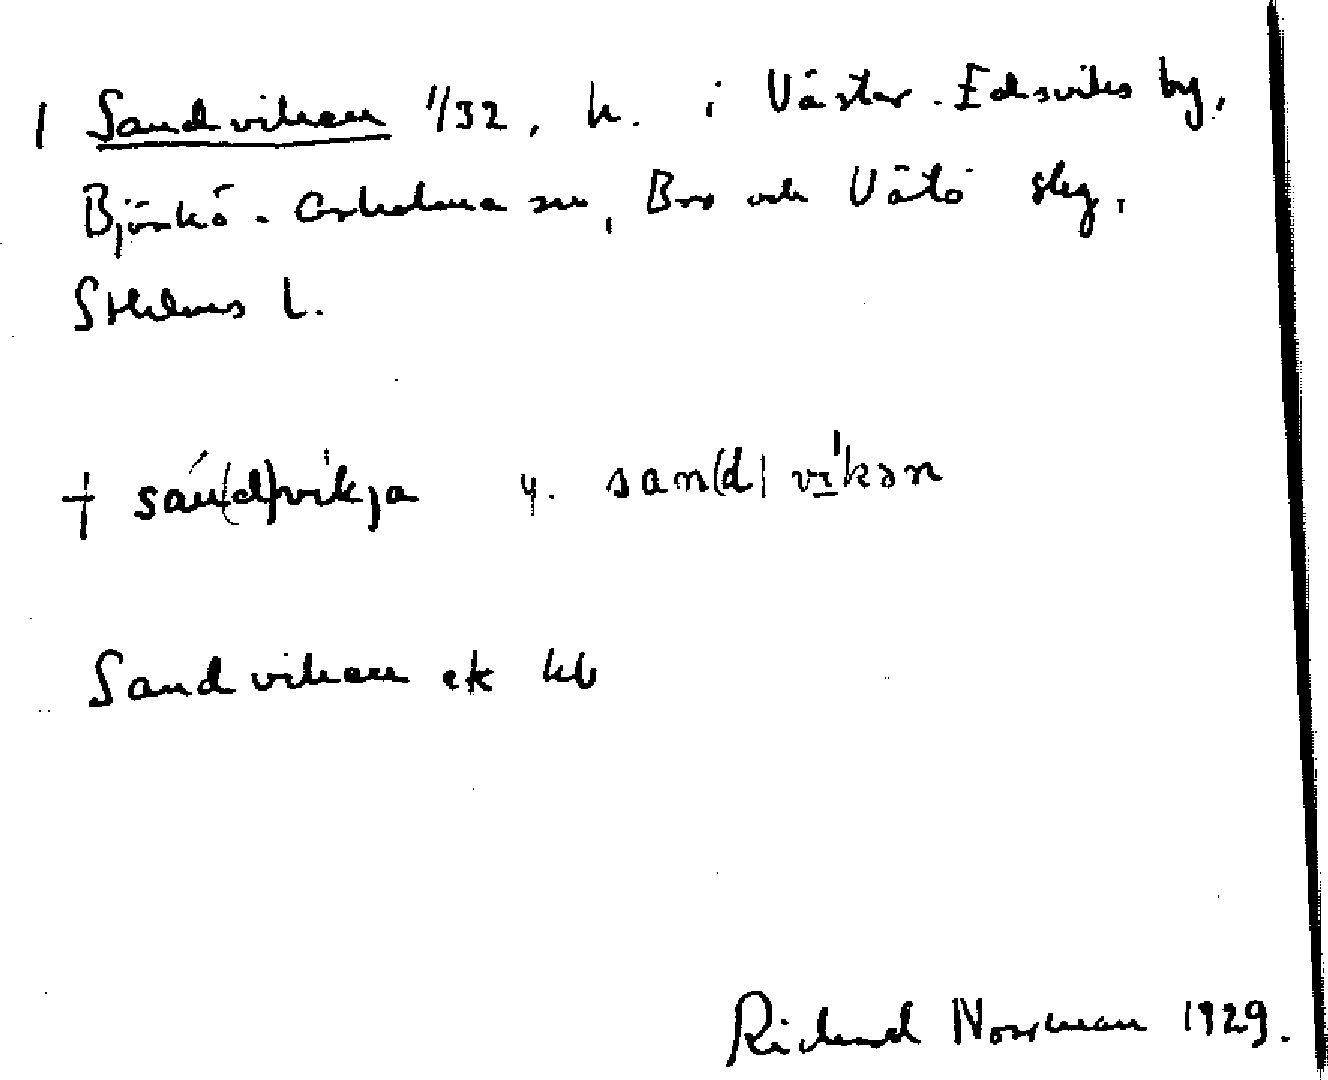 1 Sandviken 1/32, h. i Väster-Edsviks by,
Björkö-Arholma sn, Bro och Vätö skg,
Sthlms l.
† sán(d)vìkja y. san(d) vɪ̍kən
Sandviken ek kb
Richard Norrman 1929.